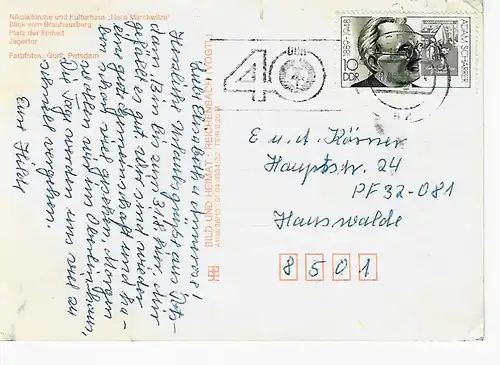 Nikolaikirche und Kulturhaus „Hans Marchwitza“
Blick vom Brauhausberg
Platz der Einheit
Jägertor
Farbfotos: Gorf, Potsdam
BILD UND HEIMAT REICHENBACH (VOGTL)
40
DDR
1889-1948
ADAM SCHARRER
10
DDR
Herzliche Urlaubsgrüße aus Pots-
dam. Bin bis zum 31.8. hier. Mir
gefällt es gut
wir sind wieder
eine gute Gemeinschaft und ha-
ben schon viel gesehen. Morgen
wollen wir
Die Tage werden uns viel zu
schnell vergehen.
Eure
E. u. A. Körner
Hauptstr. 24
PF 32-081
Hauswalde
8501